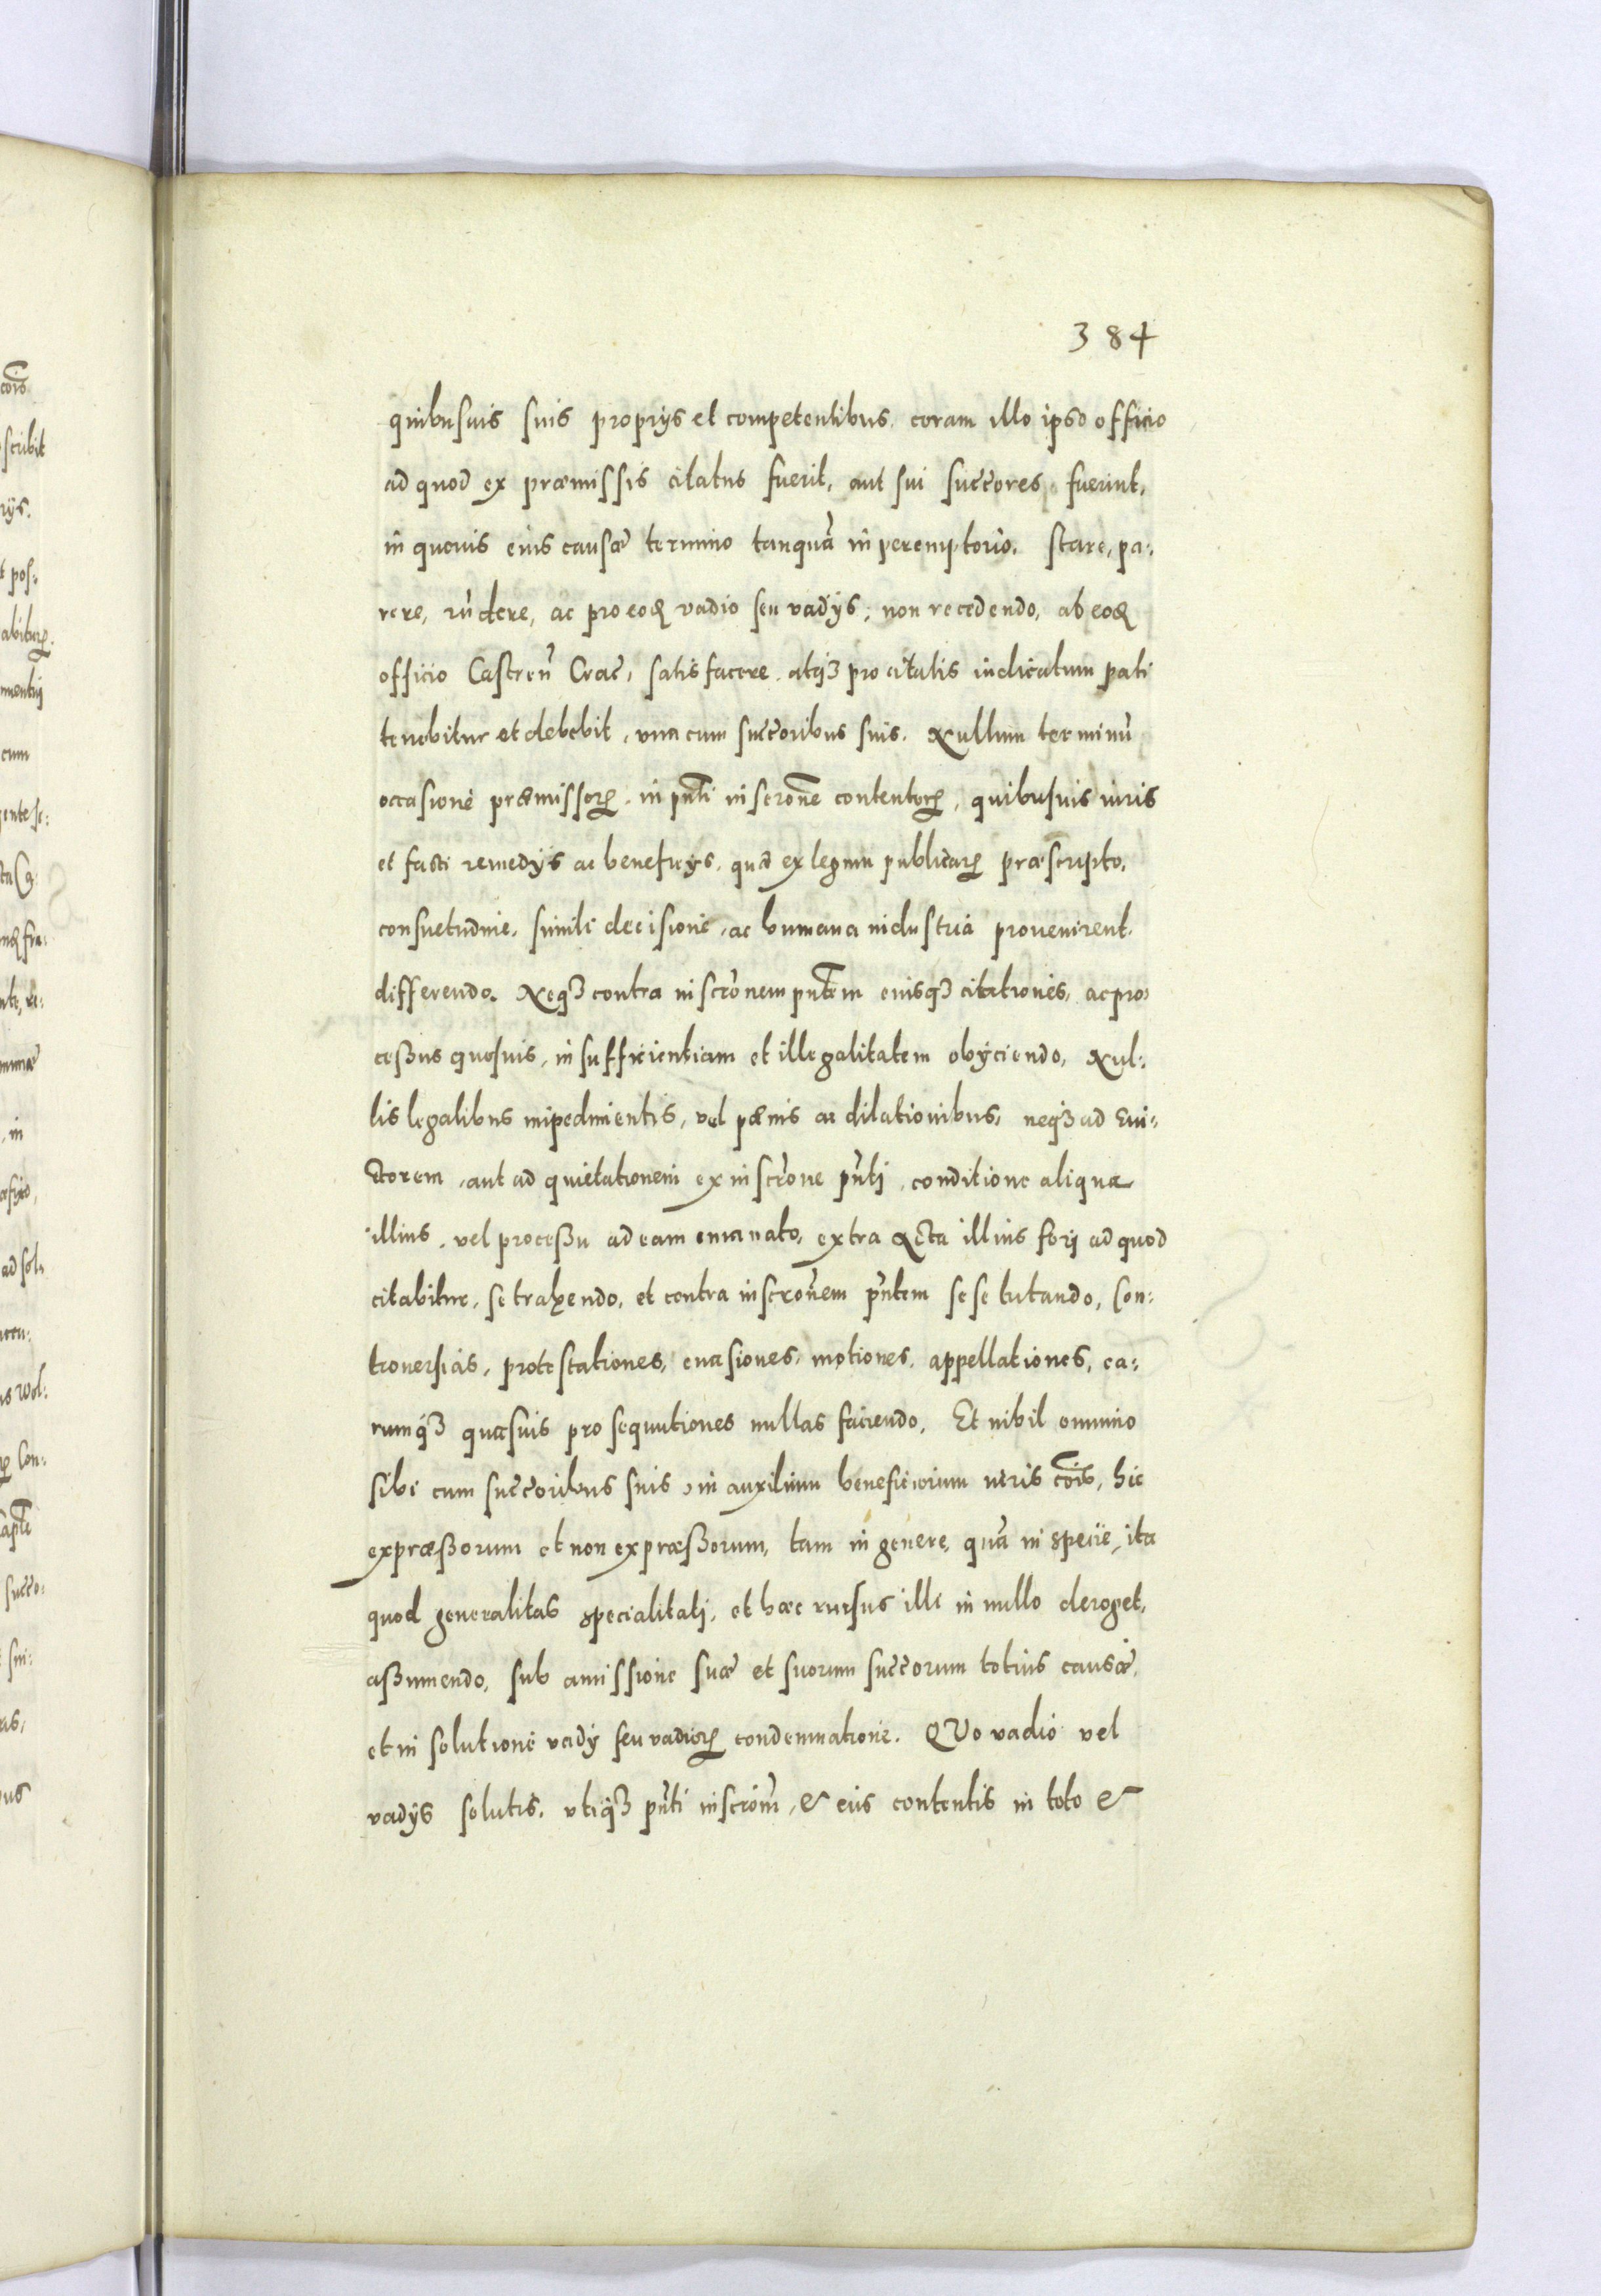 384
quibusuis suis proprijs et competentibus, coram illo ipso officio
ad quod ex præmissis citatus fuerit, aut sui succ̃ores fuerint,
in quouis eius causæ termino tanquã in peremptorio. stare, pa:
rere, rñdere, ac pro eoꝗ vadio seu vadijs, non recedendo, ab eoꝗ
officio Castreñ Crac̃, satisfacere atqȝ pro citatis iudicatum pati
tenebitur et debebit, vna cum succ̃oribus suis. Nullum terminũ
occasione præmissorꝝ in pñti inscrone contentorꝝ, quibusuis iuris
et facti remedijs ac beneficijs, quæ ex legum publicarꝝ præscripto,
consuetudine, simili decisione, ac humana industria prouenirent
differendo. Neqȝ contra inscrõnem pñtem eiusqȝ citationes, ac pro
ceßus quosuis, insufficientiam et illegalitatem obijciendo, Nul:
lis legalibus impedimentis, vel pænis ac dilationibus, neqȝ ad Eui:
ctorem, aut ad quietationem ex inscrõne pñti, conditione aliqua
illius, vel proceßu ad eam emanato, extra Acta illius fori ad quod
citabitur, se trahendo, et contra inscrõnem pñtem sese tutando, Con:
trouersias, protestationes, euasiones, motiones, appellationes, ea:
rumqȝ quasuis prosequutiones nullas faciendo. Et nihil omnino
sibi cum succ̃oribus suis, in auxilium beneficiorum iuris cõis, hic
expræßorum et non expræßorum, tam in genere, quã in specie, ita
quod generalitas specialitati, et hæc rursus illi in nullo deroget,
aßumendo, sub amissione suæ et suorum succ̃orum totius causæ,
et in solutione vadij seu vadiorꝝ condemnatione. QVo vadio vel
vadijs solutis, vtiqȝ pñti inscrõni, & eius contentis in toto &